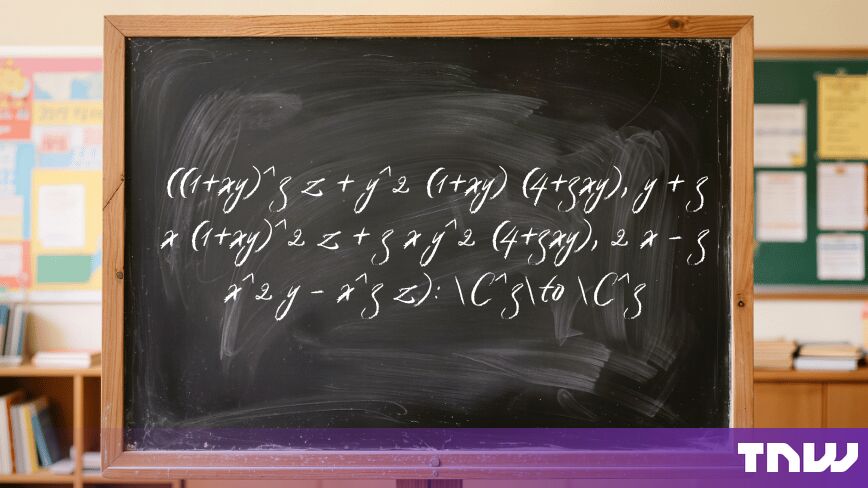 ((1+xy)^3 z + y^2 (1+xy) (4+3xy), y + 3
x (1+xy)^2 z + 3 x y^2 (4+3xy), 2 x - 3
x^2 y - x^3 z): \C^3\to \C^3
TNW